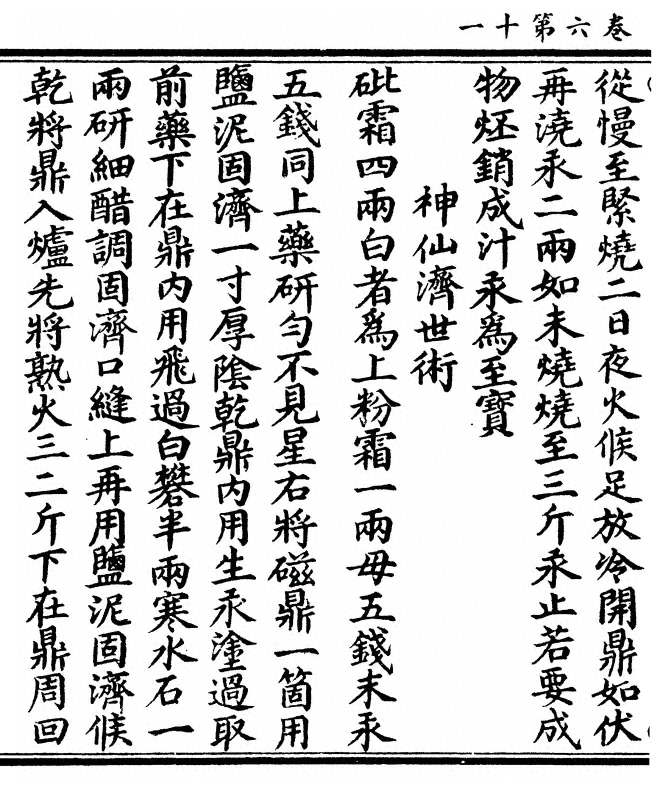 卷六第十一
從慢至緊燒二日夜火候足放冷開鼎如伏
再澆汞二兩如未燒燒至三斤汞止若要成
物坯銷成汁汞爲至寶
神仙濟世術
砒霜四兩白者爲上粉霜一兩母五錢末汞
五錢同上藥硏勻不見星右將磁鼎一箇用
鹽泥固濟一寸厚陰乾鼎内用生汞塗過取
前藥下在鼎内用飛過白礬半兩寒水石一
兩硏細醋調固濟口縫上再用鹽泥固濟候
乾將鼎入爐先將熟火三二斤下在鼎周回